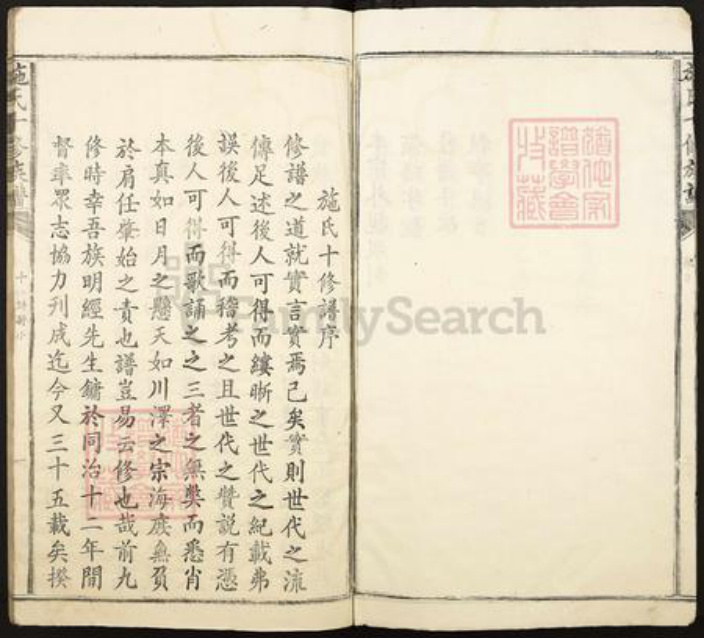 施氏十修譜序
修譜之道就實言實焉已矣實則世代之流
傳足述後人可得而縷晰之世代之紀載弗
誤後人可得而稽考之且世代之贊説有憑
後人可得而歌誦之之三者之無獘而悉肖
本真如日月之懸天如川澤之宗海庶無負
於肩任肇始之責也譜豈易云修也哉前九
修時幸吾族明經先生鏞於同治十二年間
督率眾志協力刋成迄今又三十五載矣揆
施氏十修族譜
施氏十修族譜
FamilySearch